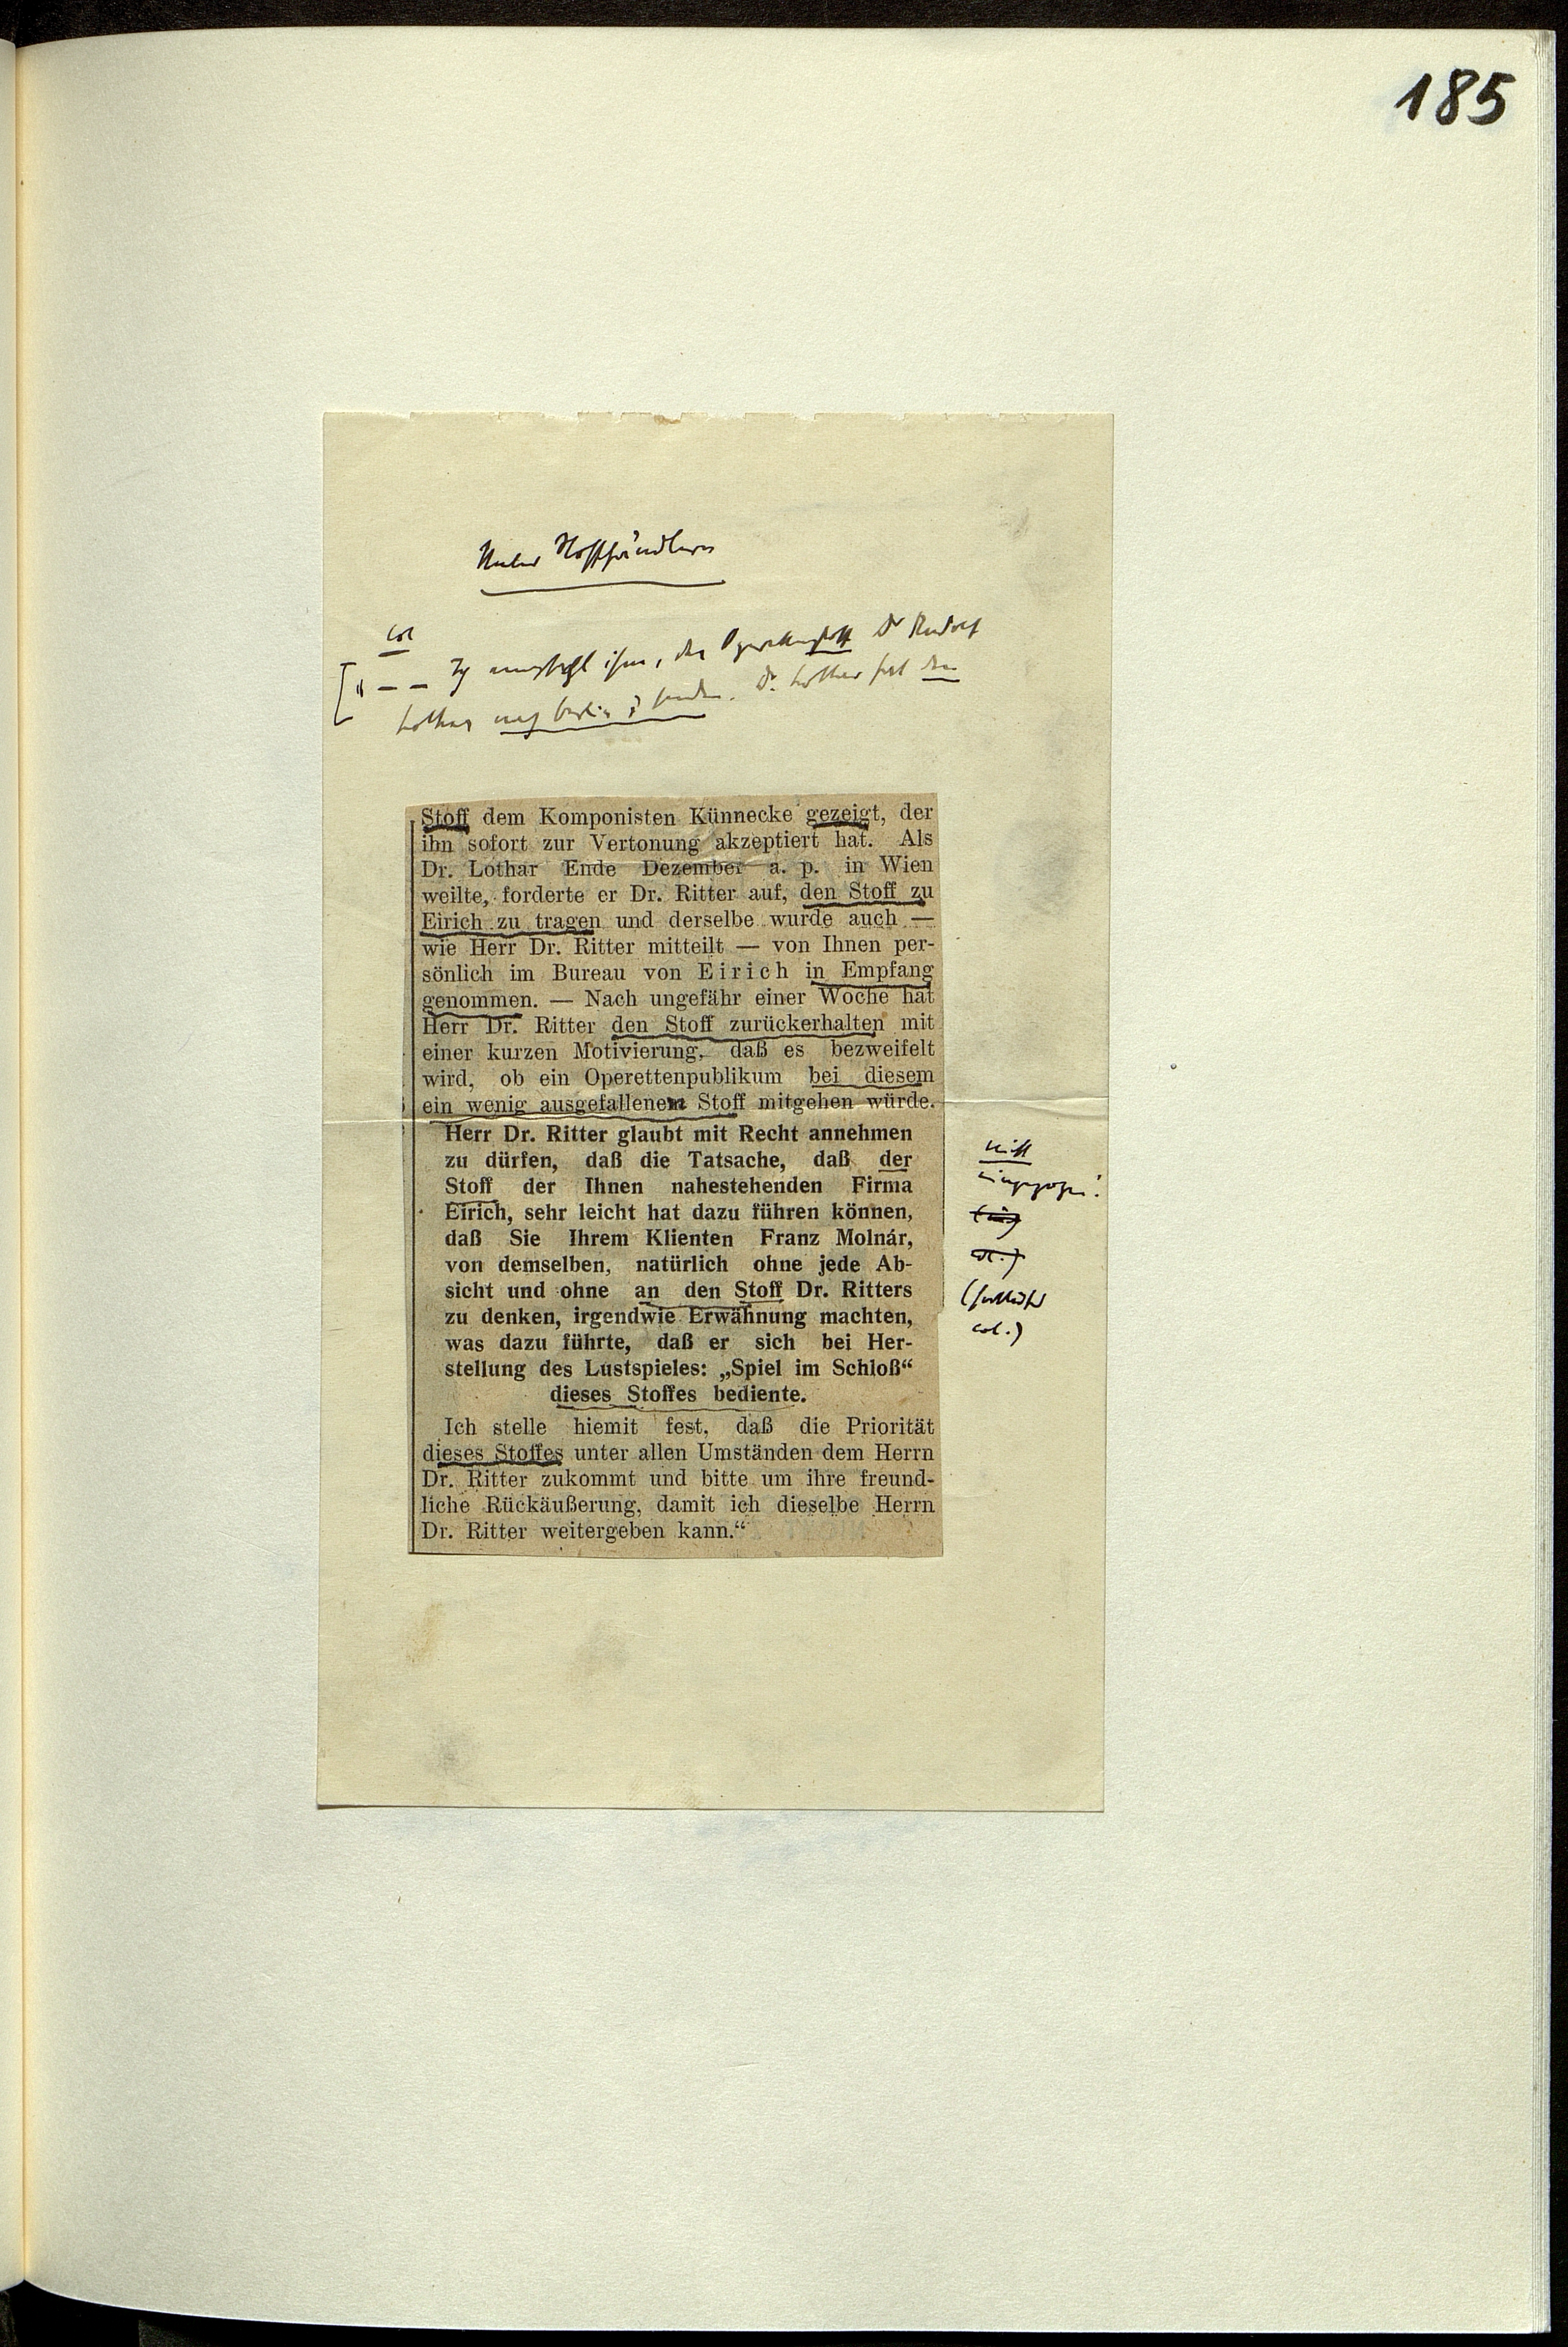 185
Unter Stoffhändlern
col
[„ — — Ich empfahl ihm, den Operettenstoff Dr Rudolf
Lothar nach Berlin z senden. Dr. Lothar hat den
Stoff dem Komponisten Künnecke gezeigt, der
ihn sofort zur Vertonung akzeptiert hat. Als
Dr. Lothar Ende Dezember a. p. in Wien
weilte, forderte er Dr. Ritter auf, den Stoff zu
Eirich zu tragen und derselbe wurde auch —
wie Herr Dr. Ritter mitteilt — von Ihnen per-
sönlich im Bureau von Eirich in Empfang
genommen. — Nach ungefähr einer Woche hat
Herr Dr. Ritter den Stoff zurückerhalten mit
einer kurzen Motivierung, daß es bezweifelt
wird, ob ein Operettenpublikum bei diesem
ein wenig ausgefallenem Stoff mitgehen würde.
Herr Dr. Ritter glaubt mit Recht annehmen
zu dürfen, daß die Tatsache, daß der
Stoff der Ihnen nahestehenden Firma
Eirich, sehr leicht hat dazu führen können,
daß Sie Ihrem Klienten Franz Molnár,
von demselben, natürlich ohne jede Ab-
sicht und ohne an den Stoff Dr. Ritters
zu denken, irgendwie Erwähnung machten,
was dazu führte, daß er sich bei Her-
stellung des Lustspieles: „Spiel im Schloß“
dieses Stoffes bediente.
nicht
eingezogen!
col.)
Ich stelle hiemit fest, daß die Priorität
dieses Stoffes unter allen Umständen dem Herrn
Dr. Ritter zukommt und bitte um ihre freund-
liche Rückäußerung, damit ich dieselbe Herrn
Dr. Ritter weitergeben kann.“